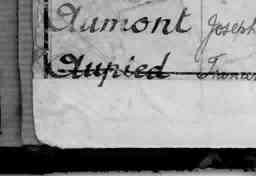 Aumont Joseph
Aupied Frances